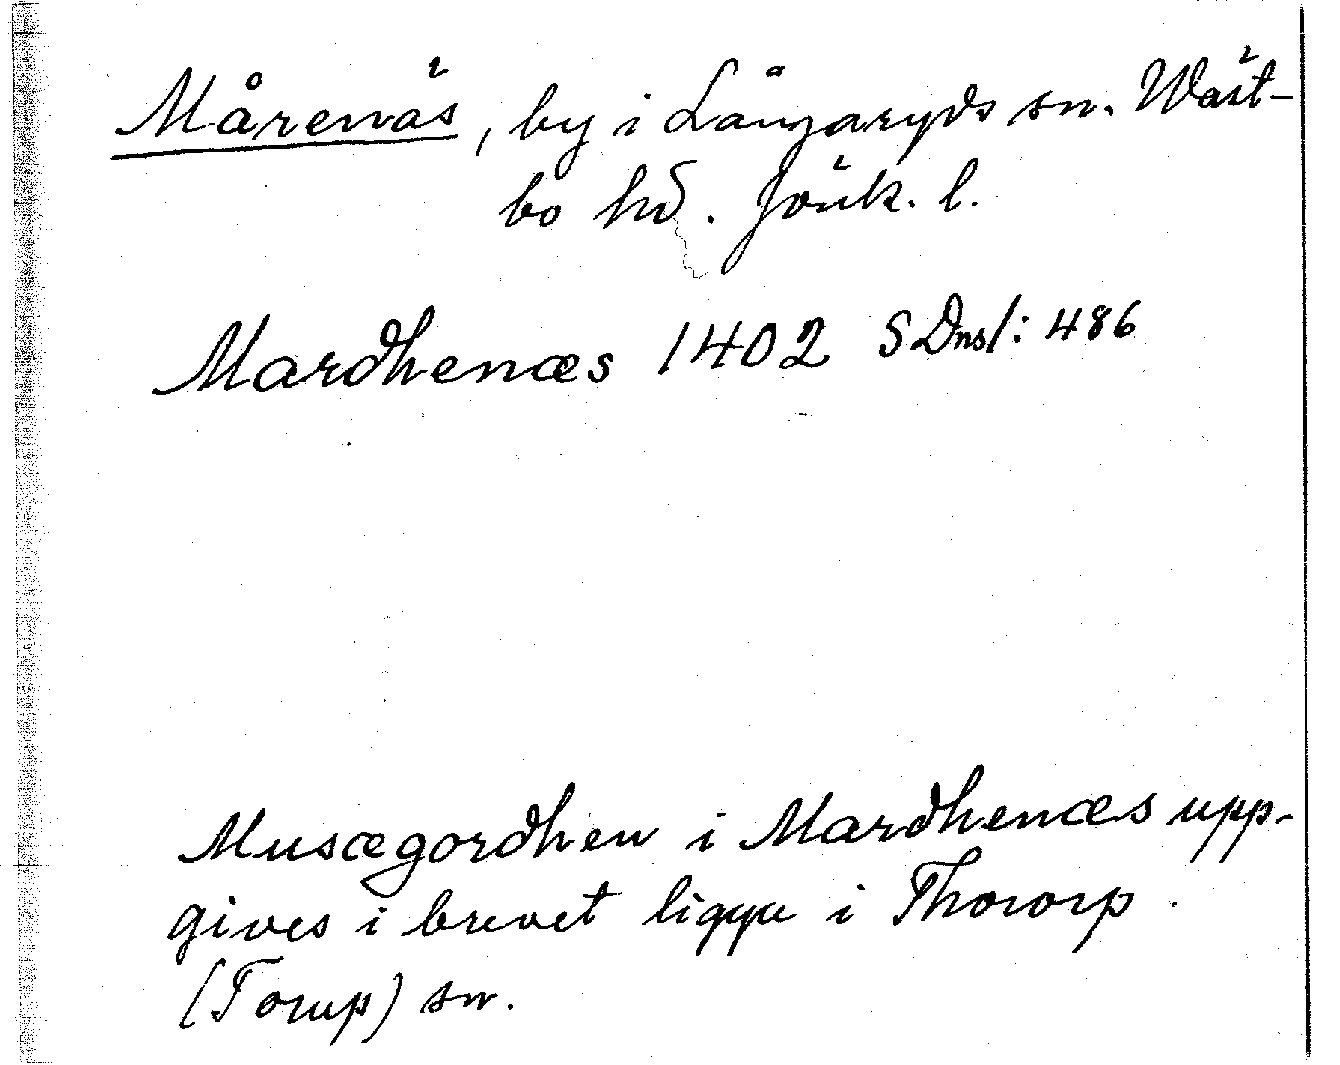 Mårenäs, by i Långaryds sn. Wäst-
bo hd. Jönk. l.
Mardhenæs 1402 SDns1: 486
Musægordhen i Mardhenæs upp-
gives i brevet ligga i Thororp.
(Torup) sn.